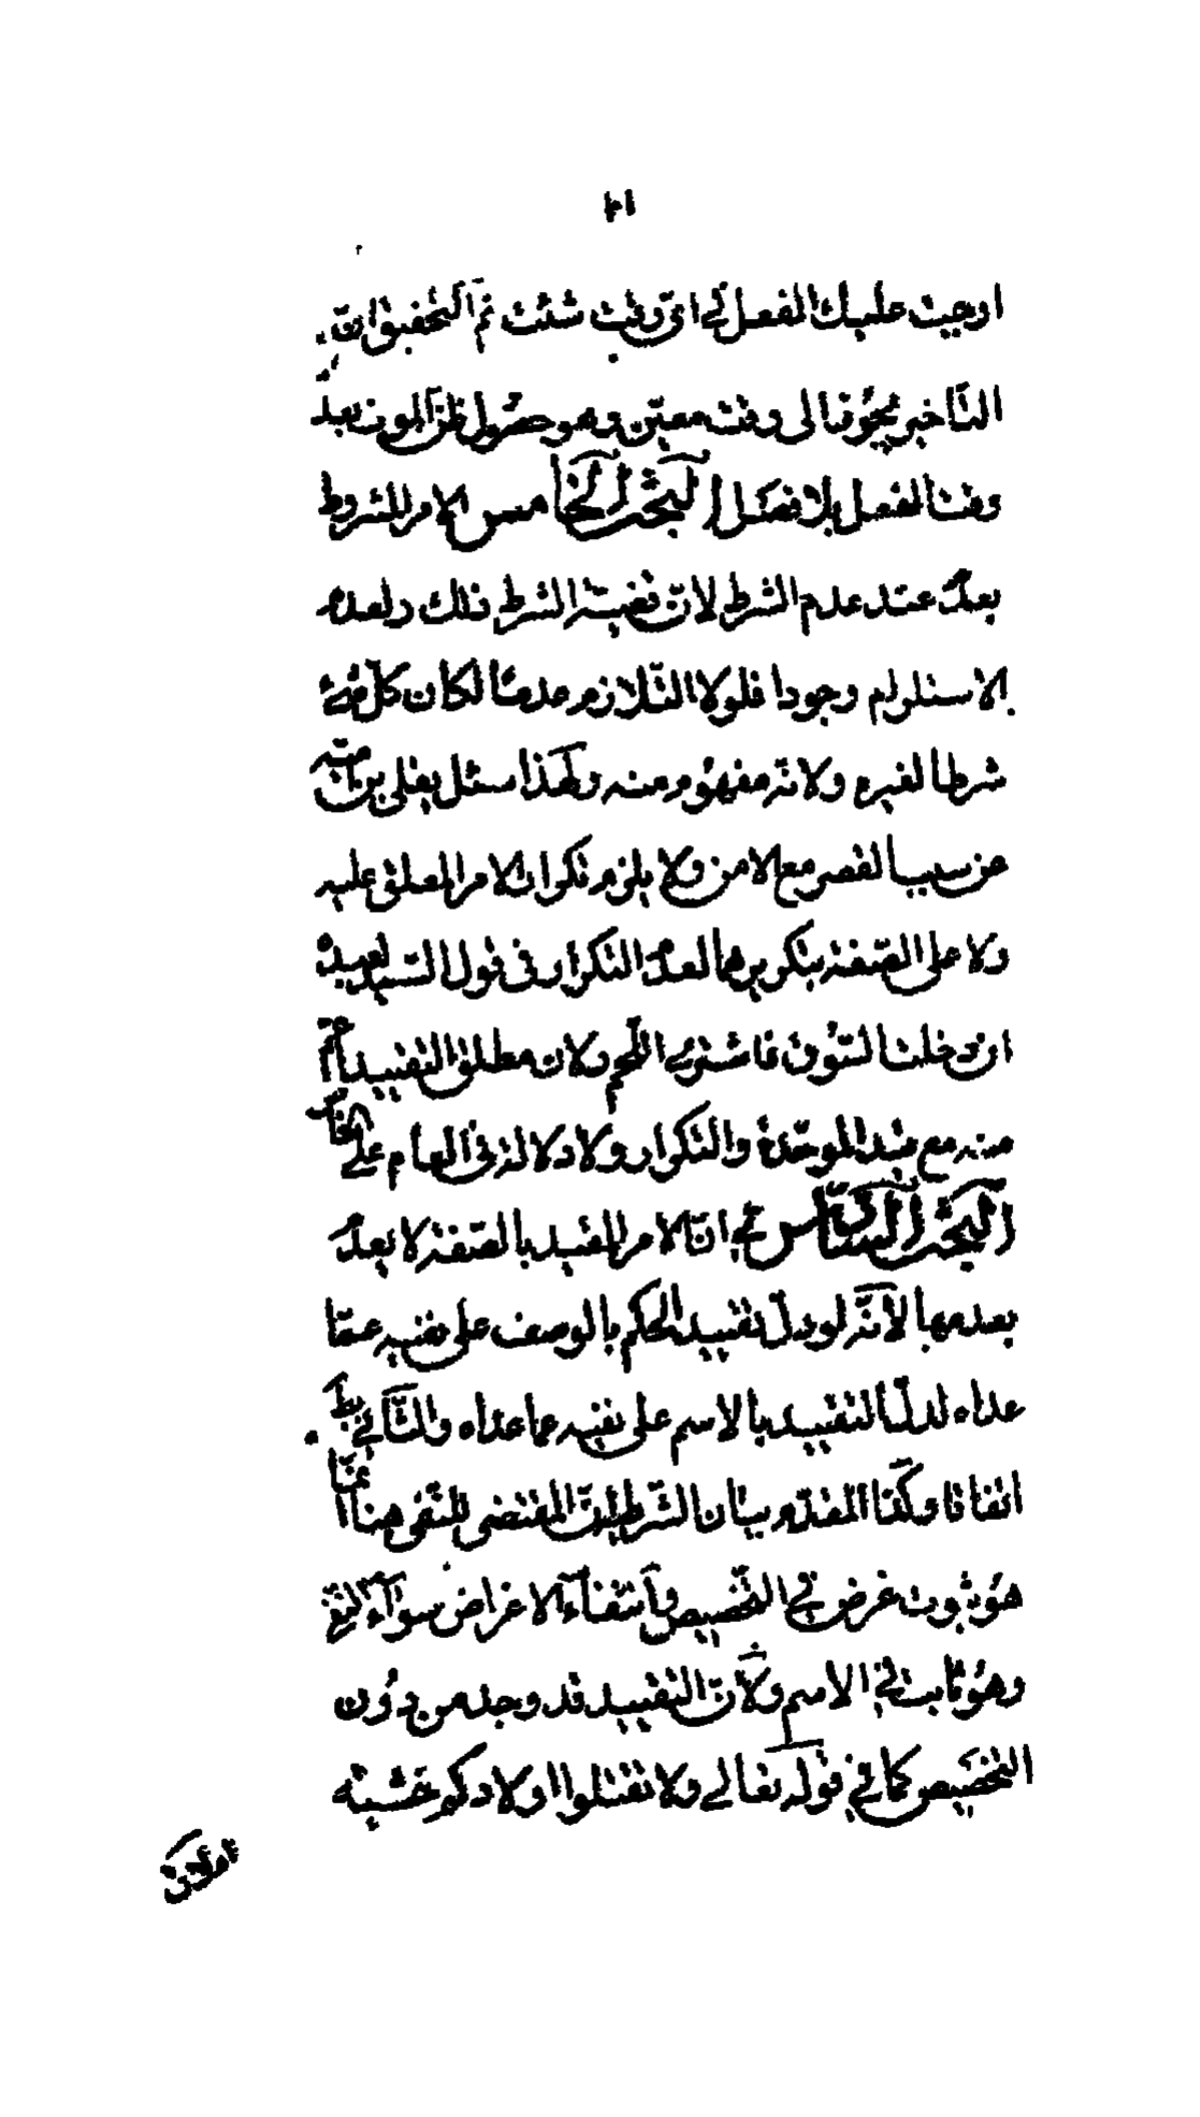 اوجبت عليك الفعل في اى وقت شئت ثم التحقيق ان
التأخير يجوز الى وقت معين وهو حصول ظن الموت بعد
وقت الفعل بلا فصل البحث الخامس الامر المشروط
يعدم عند عدم الشرط لان قضية الشرط ذلك
الاستلزام وجودا فلولا التلازم عدما لكان كل شئ
شرطا لغيره ولانه مفهوم منه ولهذا سئل يعلى بن منيه
عن سبب القصر مع الامن ولا يلزم تكرار الامر المعلق عليه
ولا على الصفة بتكريرهما لعدم التكرار فى قول السيد لعبده
ان دخلت السوق فاشترى اللحم ولان مطلق التقييد اعم
منه مع قيد الوحدة والتكرار ولا دلالة فى العام على الخاص
البحث السادس في ان الامر المقيد بالصفة لا يعدم
بعدمها لانه لو دل تقييد الحكم بالوصف على نفيه عما
عداه لدل التقييد بالاسم على نفيه عما عداه والتالي بط
اتفاقا وكذا المقدم بيان الشرطية ان المقتضى للنفى هناك انما
هو ثبوت غرض في التخصيص وانتفاء الاغراض سواء النفى
وهو ثابت في الاسم ولان التقييد قد وجد من دون
التخصيص كما في قوله تعالى ولا تقتلوا اولادكم خشية
املاق